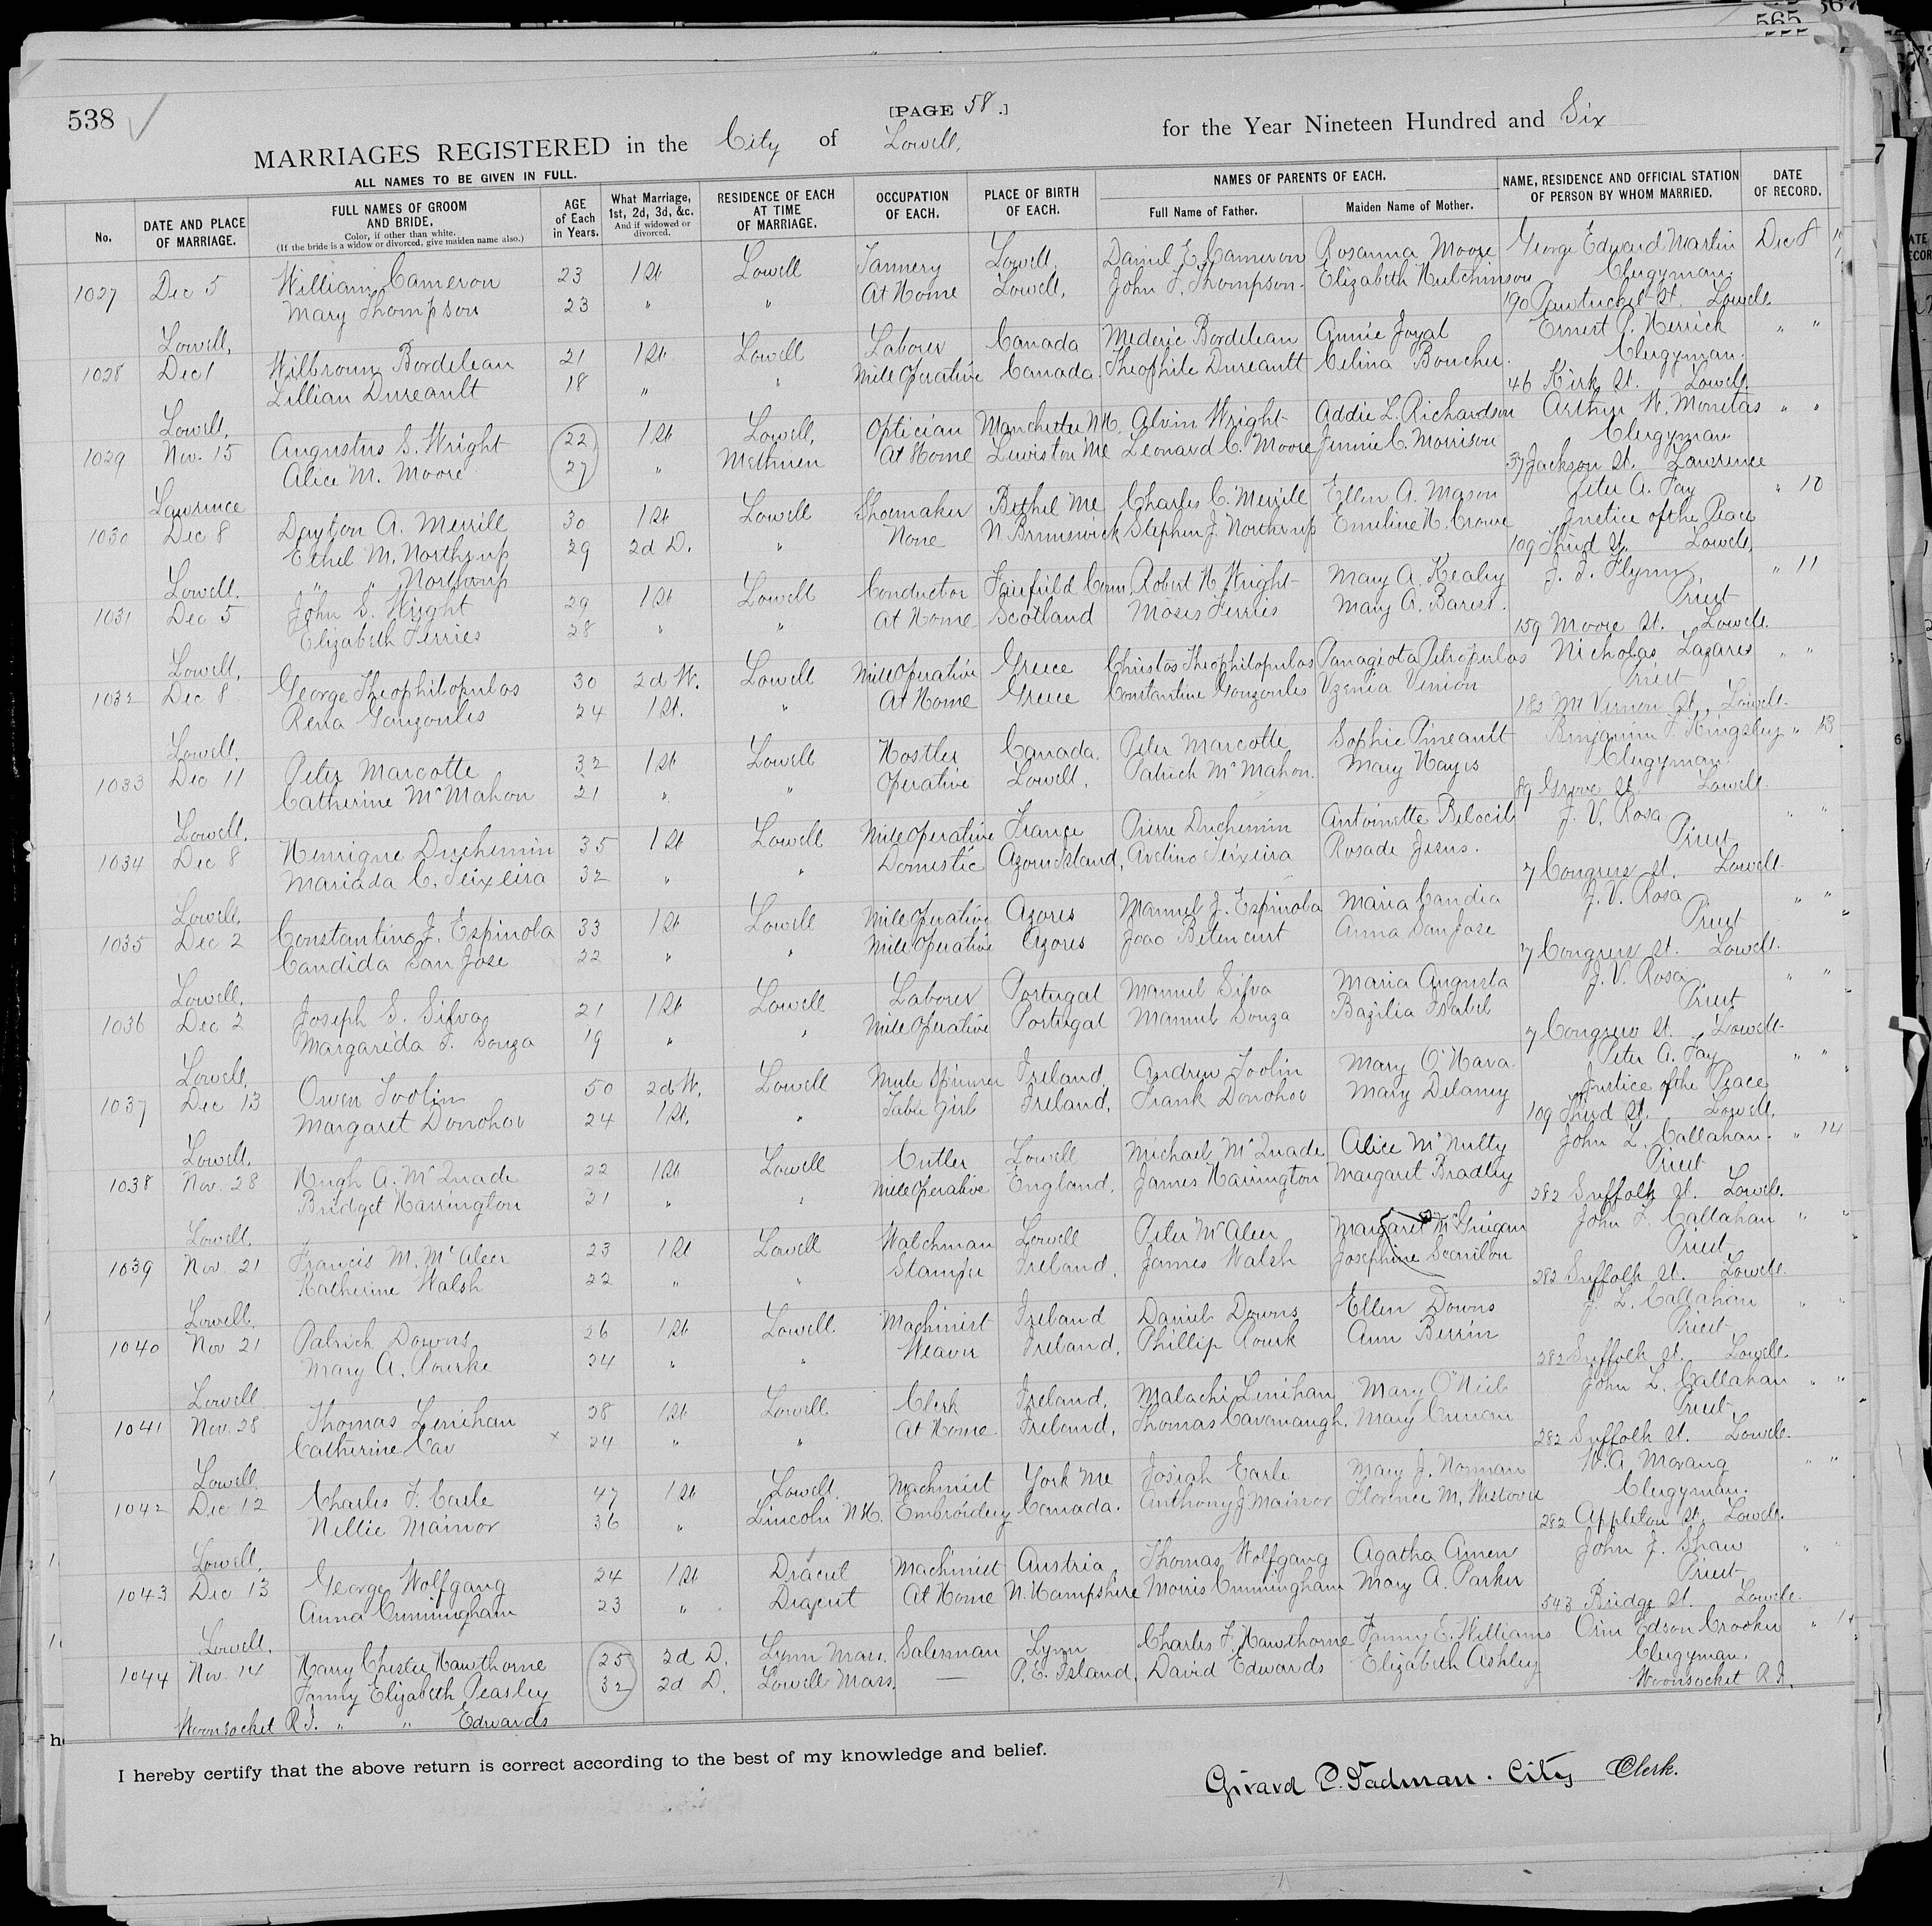 565 567
538 ✓
[PAGE 58.]
MARRIAGES REGISTERED in the City of Lowell, for the Year Nineteen Hundred and Six
ALL NAMES TO BE GIVEN IN FULL.
No. | DATE AND PLACE OF MARRIAGE. | FULL NAMES OF GROOM AND BRIDE. Color, if other than white. (If the bride is a widow or divorced, give maiden name also.) | AGE of Each in Years. | What Marriage, 1st, 2d, 3d, &c. And if widowed or divorced. | RESIDENCE OF EACH AT TIME OF MARRIAGE. | OCCUPATION OF EACH. | PLACE OF BIRTH OF EACH. | NAMES OF PARENTS OF EACH. Full Name of Father. | Maiden Name of Mother. | NAME, RESIDENCE AND OFFICIAL STATION OF PERSON BY WHOM MARRIED. | DATE OF RECORD.
1027 Dec 5 William Cameron 23 1st Lowell Tannery Lowell Daniel E Cameron Rosanna Moore George Edward Martin Dec 8
Mary Thompson 23 " " At Home Lowell, John F. Thompson. Elizabeth Hutchinson Clergyman
Lowell, 190 Pawtucket St. Lowell.
1028 Dec 1 Wilbroun Bordeleau 21 1st Lowell Laborer Canada Mederic Bordeleau Annie Joyal Ernest P. Herrick " "
Lillian Dureault 18 " " Mill Operative Canada. Theophile Dureault Celina Boucher. Clergyman.
Lowell, 46 Kirk St. Lowell.
1029 Nov. 15 Augustus S. Wright 22 1st Lowell, Optician Manchester N.H. Alvin Wright Addie L. Richardson Arthur W. " "
Alice M. Moore 27 " Methuen At Home Lewiston Me Leonard C. Moore Jennie C. Morrison Clergyman
Lawrence 37 Jackson St. Lawrence
1030 Dec 8 Dayton A. Merrill 30 1st Lowell Shoemaker Bethel Me Charles C. Merrill Ellen A. Mason Peter A. Fay " 10
Ethel M. Northrup 29 2d D. " None N. Brunswick Stephen J. Northrup Emeline H. Crowe Justice of the Peace
Lowell. " " Northrup 109 Third St. Lowell,
1031 Dec 5 John S. Wright 29 1st Lowell Conductor Fairfield Conn. Robert H. Wright Mary A. Kealey J. J. Flynn, " 11
Elizabeth Ferries 28 " " At Home Scotland Moses Ferries Mary A. Priest
Lowell, 159 Moore St. Lowell.
1032 Dec 8 George Theophilopulos 30 2d W. Lowell Mill Operative Greece Christos Theophilopulos Panagiota Petropulos Nicholas Lazares " "
Rena Gouzoules 24 1st. " At Home Greece Constantine Gouzoules Vzenia Venion Priest
Lowell, 182 Mt Vernon St., Lowell.
1033 Dec 11 Peter Marcotte 32 1st Lowell Hostler Canada. Peter Marcotte Sophie Pineault Benjamin F. Kingsley " 13
Catherine McMahon 21 " " Operative Lowell, Patrick McMahon. Mary Hayes Clergyman
Lowell, 89 Grove St. Lowell.
1034 Dec 8 Henrique Duchemin 35 1st Lowell Mill operative France Pierre Duchemin Antoinette J. V. Rosa "
Mariada C. Teixeira 32 " " Domestic Azores Island, Avelino Teixeira Rosade Jesus. Priest
Lowell, 7 Congress St. Lowell.
1035 Dec 2 Constantino J. Espinola 33 1st Lowell Mill Operative Azores Manuel J. Espinola Maria Candia J. V. Rosa " "
Candida San Jose 22 " " Mill Operative Azores Joao Betencurt Anna San Jose Priest
Lowell, 7 Congress St. Lowell.
1036 Dec 2 Joseph S. Silva 21 1st Lowell Laborer Portugal Manuel Silva Maria Augusta J. V. Rosa " "
Margarida T. Souza 19 " " Mill Operative Portugal Manuel Souza Bazilia Isabel Priest
Lowell, 7 Congress St. Lowell.
1037 Dec 13 Owen Toolin 50 2d W. Lowell Mule Spinner Ireland, Andrew Toolin Mary O'Hara. Peter A. Fay " "
Margaret Donohoe 24 1st. " Table Girl Ireland, Frank Donohoe Mary Delaney Justice of the Peace
Lowell, 109 Third St. Lowell.
1038 Nov. 28 Hugh A. McQuade 22 1st Lowell Cutler Lowell Michael McQuade Alice McNulty John L. Callahan. " 14
Bridget Harrington 21 " " Mill operative England, James Harrington Margaret Bradley Priest
Lowell. 282 Suffolk St. Lowell.
1039 Nov. 21 Francis M. McAleer 23 1st Lowell Watchman Lowell Peter McAleer Margaret McGrigan John L. Callahan " "
Katherine Walsh 22 " " Stamper Ireland, James Walsh Josephine Scanlon Priest
Lowell. 282 Suffolk St. Lowell.
1040 Nov 21 Patrick Downs 26 1st Lowell Machinist Ireland Daniel Downs Ellen Downs J. L. Callahan " "
Mary A. Rourke 24 " " Weaver Ireland, Phillip Rourk Ann Berrin Priest
Lowell 282 Suffolk St. Lowell.
1041 Nov. 28 Thomas Linihan 28 1st Lowell Clerk Ireland, Malachi Linihan Mary O'Neil John L. Callahan " "
Catherine Cav × 24 " " At Home Ireland, Thomas Cavanaugh. Mary Priest
Lowell 282 Suffolk St. Lowell.
1042 Dec 12 Charles F. Earle 47 1st Lowell Machinist York Me Josiah Earle Mary J. Norman W. A. Morang " "
Nellie Mainor 36 " Lincoln N.H. Embroidery Canada. Anthony J Mainor Florence M. Westover Clergyman.
Lowell, 282 Appleton St. Lowell.
1043 Dec 13 George Wolfgang 24 1st Dracut Machinist Austria Thomas Wolfgang Agatha Amen John J. Shaw " "
Anna Cunningham 23 " Dracut At Home N. Hampshire Morris Cunningham Mary A. Parker Priest
Lowell. 543 Bridge St. Lowell.
1044 Nov. 14 Harry Chester Hawthorne 25 2d D. Lynn Mass. Salesman Lynn Charles F. Hawthorne Fanny E. Williams Orin Edson Crooker "
Fanny Elizabeth Peasley 32 2d D. Lowell Mass. — P. E. Island, David Edwards Elizabeth Ashley Clergyman.
Woonsocket R.I. " " Edwards Woonsocket R.I.
I hereby certify that the above return is correct according to the best of my knowledge and belief.
Girard P. Dadman. City Clerk.